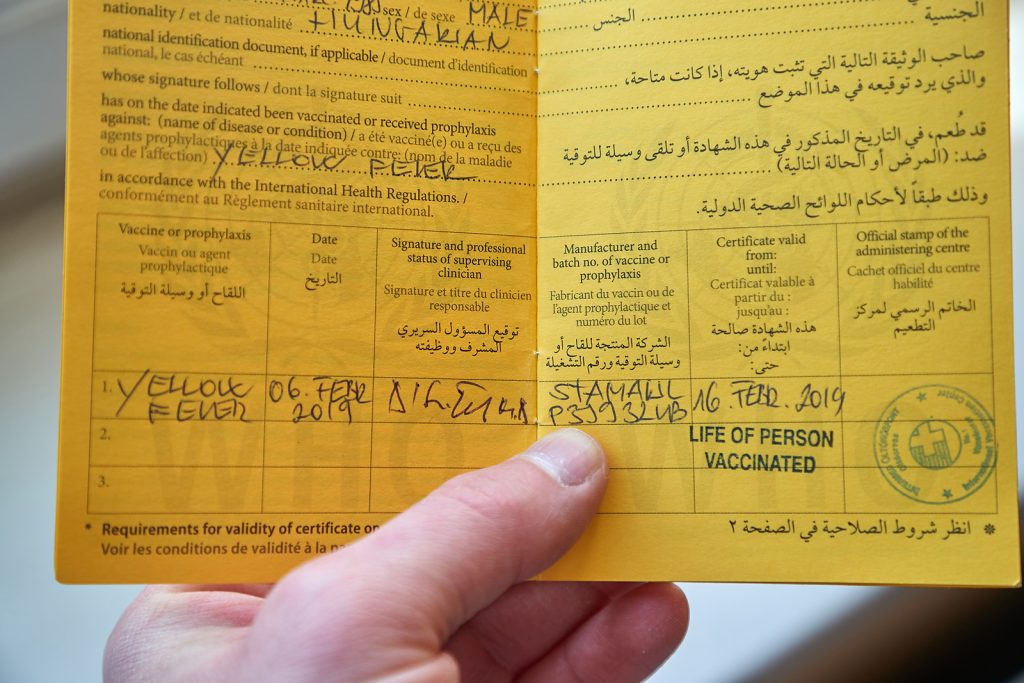 sex / de sexe MALE
nationality / et de nationalité HUNGARIAN
national identification document, if applicable / document d'identification
national, le cas échéant
whose signature follows / dont la signature suit
has on the date indicated been vaccinated or received prophylaxis
against: (name of disease or condition) / a été vacciné(e) ou a reçu des
agents prophylactiques à la date indiquée contre: (nom de la maladie
ou de l'affection) YELLOW FEVER
in accordance with the International Health Regulations. /
conformément au Règlement sanitaire international.
الجنس
الجنسية
صاحب الوثيقة التالية التي تثبت هويته، إذا كانت متاحة،
والذي يرد توقيعه في هذا الموضع
قد طُعم، في التاريخ المذكور في هذه الشهادة أو تلقى وسيلة للتوقية
ضد: (المرض أو الحالة التالية)
وذلك طبقاً لأحكام اللوائح الصحية الدولية.
Vaccine or prophylaxis
Vaccin ou agent
prophylactique
اللقاح أو وسيلة التوقية
Date
Date
التاريخ
Signature and professional
status of supervising
clinician
Signature et titre du clinicien
responsable
توقيع المسؤول السريري
المشرف ووظيفته
Manufacturer and
batch no. of vaccine or
prophylaxis
Fabricant du vaccin ou de
l'agent prophylactique et
numéro du lot
الشركة المنتجة للقاح أو
وسيلة التوقية ورقم التشغيلة
Certificate valid
from:
until:
Certificat valable à
partir du :
jusqu'au :
هذه الشهادة صالحة
ابتداءً من:
حتى:
Official stamp of the
administering centre
Cachet officiel du centre
habilité
الخاتم الرسمي لمركز
التطعيم
1. YELLOW
FEVER
06. FEBR
2019
STAMARIL
16. FEBR. 2019
LIFE OF PERSON
VACCINATED
2.
3.
* Requirements for validity of certificate
Voir les conditions de validité à la
* انظر شروط الصلاحية في الصفحة ٢